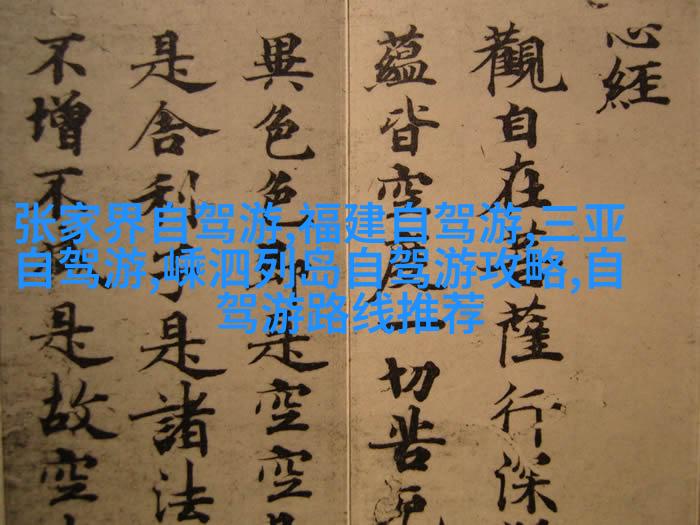 心經
觀自在菩薩行深
蘊皆空度一切苦厄
異色色即是空空
是舍利子是諸法
不增不減是故空
张家界自驾游,福建自驾游,三亚
自驾游,嵊泗列岛自驾游攻略,自
驾游路线推荐